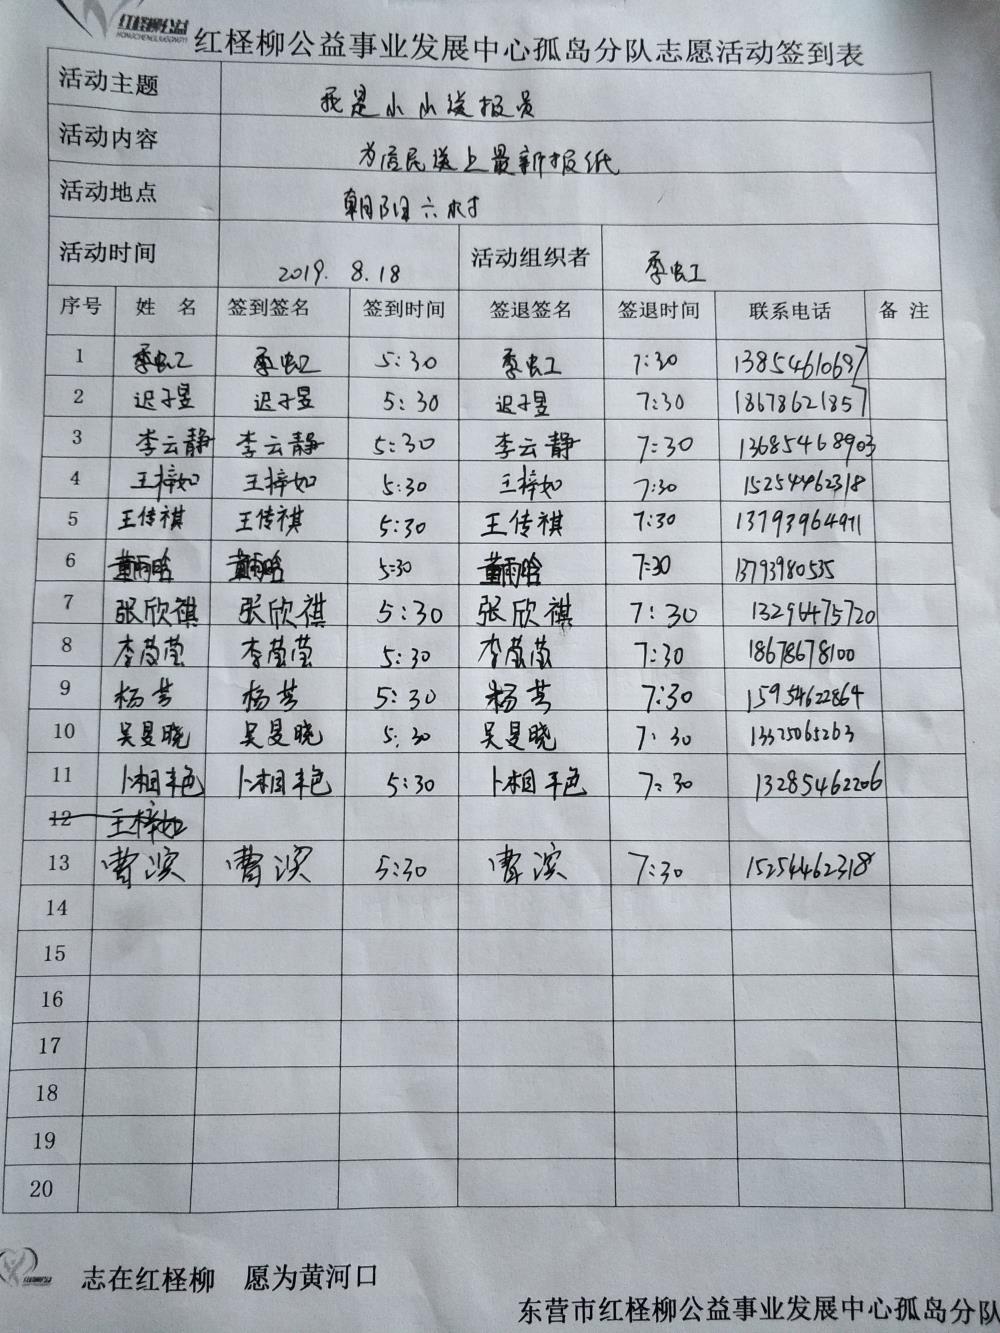 红柽柳公益
红柽柳公益事业发展中心孤岛分队志愿活动签到表
活动主题 我是小小送报员
活动内容 为居民送上最新报纸
活动地点 朝阳六村
活动时间 2019. 8.18 活动组织者 季虹
序号 姓 名 签到签名 签到时间 签退签名 签退时间 联系电话 备 注
1 季虹 季虹 5:30 季虹 7:30 13854610697
2 迟子昱 迟子昱 5:30 迟子昱 7:30 18678621857
3 李云静 李云静 5:30 李云静 7:30 13685468903
4 王梓如 王梓如 5:30 王梓如 7:30 15254462318
5 王传祺 王传祺 5:30 王传祺 7:30 13793964911
6 董雨晗 董雨晗 5:30 董雨晗 7:30 13793980535
7 张欣祺 张欣祺 5:30 张欣祺 7:30 13296475720
8 李莹莹 李莹莹 5:30 李莹莹 7:30 18678678100
9 杨芸 杨芸 5:30 杨芸 7:30 15954622864
10 吴旻晓 吴旻晓 5:30 吴旻晓 7:30 13325065263
11 卜相丰色 卜相丰色 5:30 卜相丰色 7:30 13285462206
12 王梓如
13 曹滨 曹滨 5:30 曹滨 7:30 15254462318
14
15
16
17
18
19
20
志在红柽柳 愿为黄河口
东营市红柽柳公益事业发展中心孤岛分队